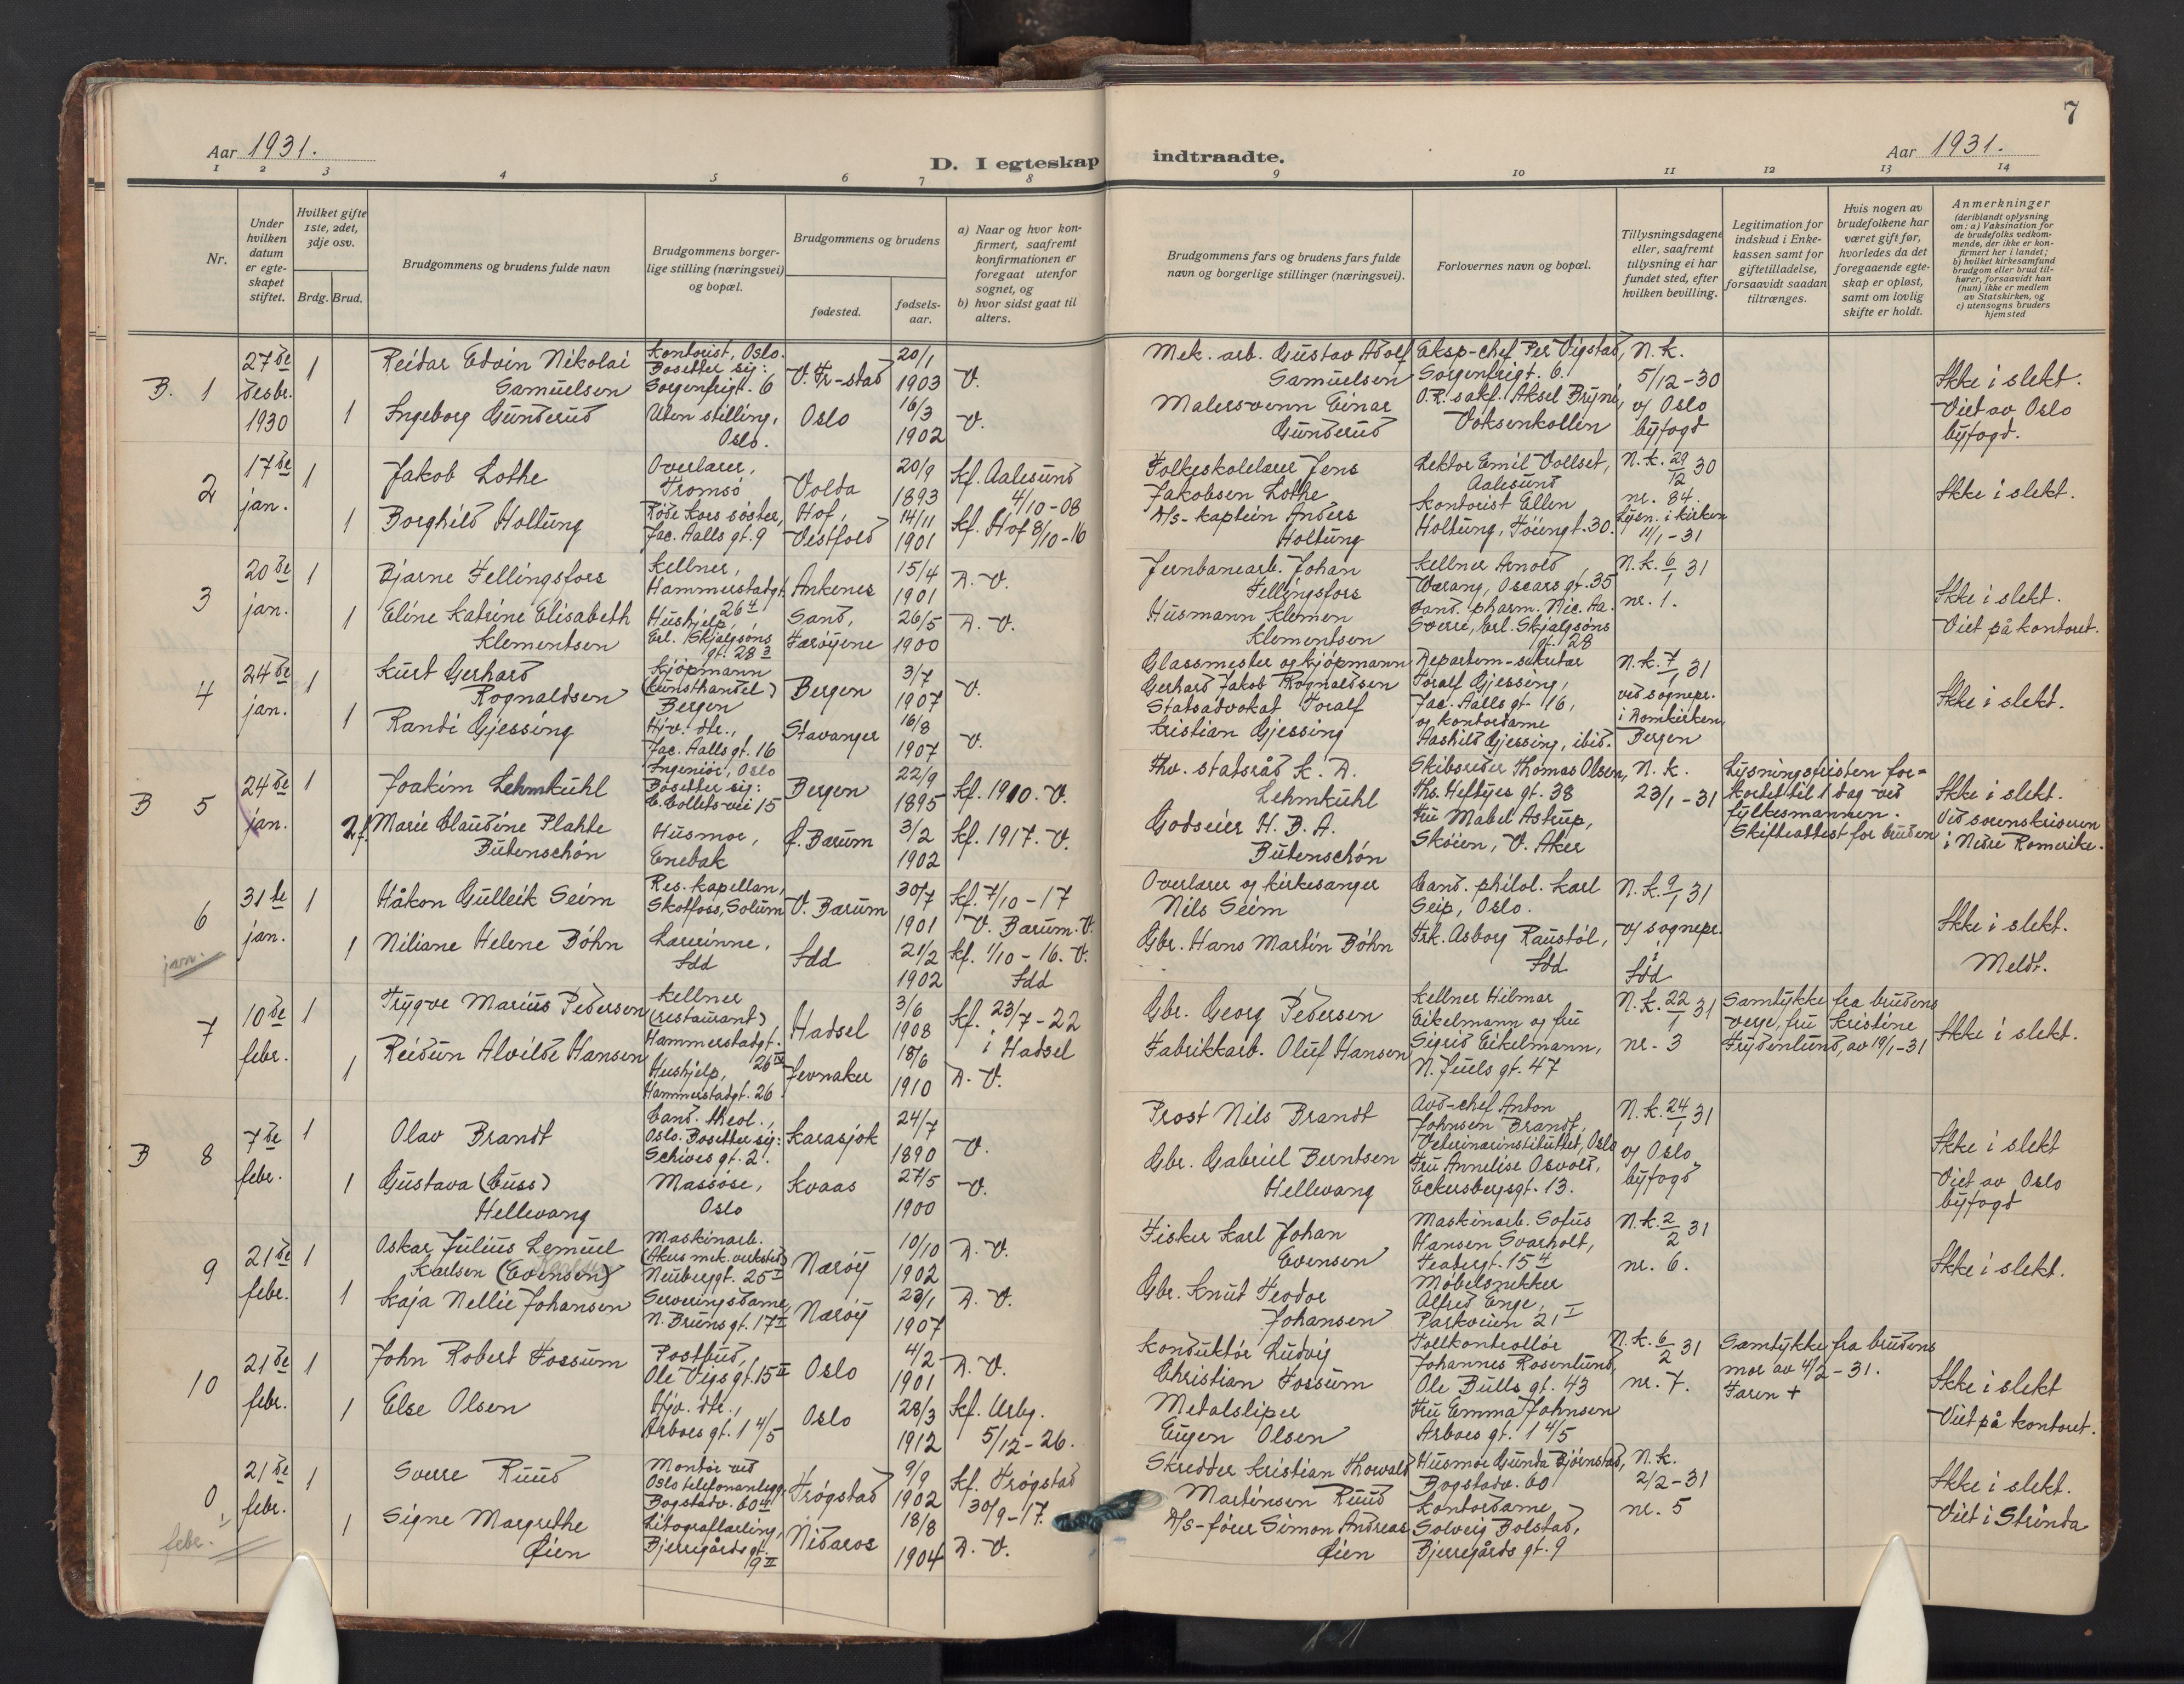 7
Aar 1931.
D. I egteskap indtraadte.
Aar 1931.
1 2 3 4 5 6 7 8 9 10 11 12 13 14
Nr.
Under hvilken datum er egteskapet stiftet.
Hvilket gifte 1ste, 2det, 3dje osv.
Brdg. Brud.
Brudgommens og brudens fulde navn
Brudgommens borgerlige stilling (næringsvei) og bopæl.
Brudgommens og brudens
fødested.
fødselsaar.
a) Naar og hvor konfirmert, saafremt konfirmationen er foregaat utenfor sognet, og
b) hvor sidst gaat til alters.
Brudgommens fars og brudens fars fulde navn og borgerlige stillinger (næringsvei).
Forlovernes navn og bopæl.
Tillysningsdagene eller, saafremt tillysning ei har fundet sted, efter hvilken bevilling.
Legitimation for indskud i Enkekassen samt for giftetilladelse, forsaavidt saadan tiltrænges.
Hvis nogen av brudefolkene har været gift før, hvorledes da det foregaaende egteskap er opløst, samt om lovlig skifte er holdt.
Anmerkninger
(deriblandt oplysning om: a) Vaksination for de brudefolks vedkommende, der ikke er konfirmert her i landet; b) hvilket kirkesamfund brudgom eller brud tilhører, forsaavidt han (hun) ikke er medlem av Statskirken, og c) utensogns bruders hjemsted
B. 1
27de desbr. 1930
1
Reidar Edvin Nikolai Samuelsen
Kontorist, Oslo. Bosetter sig: Sorgenfrigt. 6
V. Fr-stad
20/1 1903
V.
1
Ingeborg Gunderud
Uten stilling, Oslo.
Oslo
16/3 1902
V.
Mek. arb. Gustav Adolf Samuelsen
Malersvenn Einar Gunderud
Eksp-chef Per Vigstad, Sorgenfrigt. 6.
O.R. sakf. Aksel Bryni, Voksenkollen
N.k. 5/12-30 v/ Oslo byfogd
Ikke i slekt.
Viet av Oslo byfogd.
2
17de jan.
1
Jakob Lothe
Overlærer, Tromsö
Volda
20/9 1893
Kf. Aalesund 4/10-08
1
Borghild Holtung
Röde Kors söster, Jac. Aalls gt. 9
Hof, Vestfold
14/11 1901
Kf. Hof 8/10-16
Folkeskolelærer Jens Jakobsen Lothe
D/s-kaptein Anders Holtung
Lektor Emil Vollset, Aalesund
Kontorist Ellen Holtung, Töiengt. 30.
N.k. 29/12 30 nr. 84.
Lysn. i kirken 11/1-31
Ikke i slekt.
3
20de jan.
1
Bjarne Fellingsfors
Kellner, Hammerstadgt. 26 4
Ankenes
15/4 1901
D. V.
1
Eline Katrine Elisabeth Klementsen
Hushjelp, Erl. Skjalgsöns gt. 28 3
Sand, Færöyene
26/5 1900
D. V.
Jernbanearb. Johan Fellingsfors
Husmann Klemen Klementsen
Kellner Arnold Wærang, Oscars gt. 35
Cand. pharm. Nic. Aa. Sverre, Erl. Skjalgsöns gt. 28
N.k. 6/1 31 nr. 1.
Ikke i slekt.
Viet på kontoret.
4
24de jan.
1
Kurt Gerhard Rognaldsen
Kjöpmann (kunsthandel) Bergen
Bergen
3/7 1907
V.
1
Randi Gjessing
Hjv. dtr., Jac. Aalls gt. 16
Stavanger
16/8 1907
V.
Glassmester og kjöpmann Gerhard Jakob Rognaldsen
Statsadvokat Toralf Kristian Gjessing
Departem-sekretær Toralf Gjessing, Jac. Aalls gt. 16, og kontordame Aashild Gjessing, ibid.
N.k. 7/1 31 ved sognepr. i Domkirken Bergen
Ikke i slekt.
B 5
24de jan.
1
Joakim Lehmkuhl
Ingeniör, Oslo Bosetter sig: C. Colletsvei 15
Bergen
22/9 1895
Kf. 1910. V.
2f.
Marie Claudine Plahte Butenschön
Husmor, Enebak
Ö. Bærum
3/2 1902
Kf. 1917. V.
Fhv. statsråd K. D. Lehmkuhl
Godseier H. B. A. Butenschön
Skibsreder Thomas Olsen, Ths. Heftyes gt. 38
Fru Mabel Astrup, Sköien, V. Aker
N.k. 23/1-31
Lysningsfristen forkortet til 1 dag ved fylkesmannen.
Skifteattest for bruden
Ikke i slekt.
Ved sorenskriveren i Nedre Romerike.
6
31te jan.
1
Håkon Gulleik Seim
Res. kapellan, Skotfoss, Solum
V. Bærum
30/7 1901
Kf. 7/10-17 V. Bærum. V.
1
Niliane Helene Böhn
Lærerinne, Idd
Idd
21/2 1902
Kf. 1/10-16. V. Idd
Overlærer og kirkesanger Nils Seim
Gbr. Hans Martin Böhn
Cand. philol. Karl Seip, Oslo.
Frk. Asborg Raustöl, Idd
N.k. 9/1 31 v/ sognepr. i Idd
Ikke i slekt.
Meldt.
jan.
7
10de febr.
1
Trygve Marius Pedersen
Kellner (restaurant) Hammerstadgt. 26 IV
Hadsel
3/6 1908
Kf. 23/7-22 i Hadsel
1
Reidun Alvilde Hansen
Hushjelp, Hammerstadgt. 26
Jevnaker
18/6 1910
D. V.
Gbr. Georg Pedersen
Fabrikkarb. Oluf Hansen
Kellner Hilmar Eikelmann og fru Sigrid Eikelmann, N. Juels gt. 47
N.k. 22/1 31 nr. 3
Samtykke fra brudens verge, fru Kristine Frydenlund, av 19/1-31
Ikke i slekt.
B 8
7de febr.
1
Olav Brandt
Cand. theol., Oslo. Bosetter sig: Schives gt. 2.
Karasjok
24/7 1890
V.
1
Gustava (Guss) Hellevang
Massöse, Oslo
Kvaas
27/5 1900
V.
Prost Nils Brandt
Gbr. Gabriel Berntsen Hellevang
Avd-chef Anton Johnsen Brandt, Veterinærinstituttet, Oslo
Fru Annelise Osvold, Eckersbergsgt. 13.
N.k. 24/1 31 v/ Oslo byfogd
Ikke i slekt
Viet av Oslo byfogd
9
21de febr.
1
Oskar Julius Lemuel Karlsen (Evensen)
Maskinarb. (Akers mek. verksted) Neuberggt. 25 I
Næröy
10/10 1902
D. V.
1
Kaja Nellie Johansen
Serveringsdame, N. Bruns gt. 17 II
Næröy
23/1 1907
D. V.
Fisker Karl Johan Evensen
Gbr. Knut Teodor Johansen
Maskinarb. Sofus Hansen Svarholt, Teatergt. 15 4
Möbelsnekker Alfred Enge, Parkveien 21 I
N.k. 2/2 31 nr. 6.
Ikke i slekt.
10
21de febr.
1
John Robert Fossum
Postbud, Ole Vigs gt. 15 II
Oslo
4/2 1901
D. V.
1
Else Olsen
Hjv. dtr., Arboes gt. 1 4/5
Oslo
28/3 1912
Kf. Urbg. 5/12-26.
Konduktör Ludvig Christian Fossum
Metalsliper Eugen Olsen
Tollkontrollör Johannes Rosenlund, Ole Bulls gt. 43
Fru Emma Johnsen Arboes gt. 1 4/5
N.k. 6/2 31 nr. 7.
Samtykke fra brudens mor av 4/2-31.
Faren +
Ikke i slekt
Viet på kontoret.
0
21de febr.
1
Sverre Ruud
Montör ved Oslo telefonanlegg, Bogstadv. 60 II
Trögstad
9/9 1902
Kf. Trögstad 30/9-17.
1
Signe Margrethe Öien
Litograflærling, Bjerregårds gt. 9 II
Nidaros
18/8 1904
D. V.
Skredder Kristian Thorvald Martinsen Ruud
D/s-förer Simon Andreas Öien
Husmor Gunda Björnstad, Bogstadv. 60
Kontordame Solveig Bolstad, Bjerregårds gt. 9
N.k. 2/2-31 nr. 5
Ikke i slekt.
Viet i Strinda
febr.